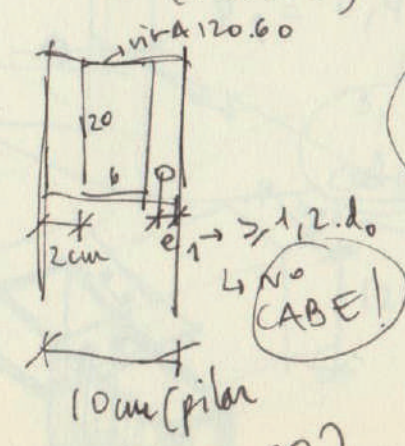 → virA 120.60
20
6
2cm
e₁ → ≥ 1,2.d₀
↳ NO
CABE!
10cm (pilar